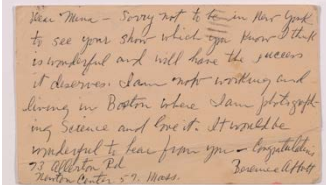 Dear Mina - Sorry not to be in New York
to see your show which you know I think
is wonderful and will have the success
it deserves. I am now working and
living in Boston where I am photograph-
ing Science and love it. It would be
wonderful to hear from you - Congratulations
73 Allerton Rd Berenice Abbott
Newton Center 59. Mass.